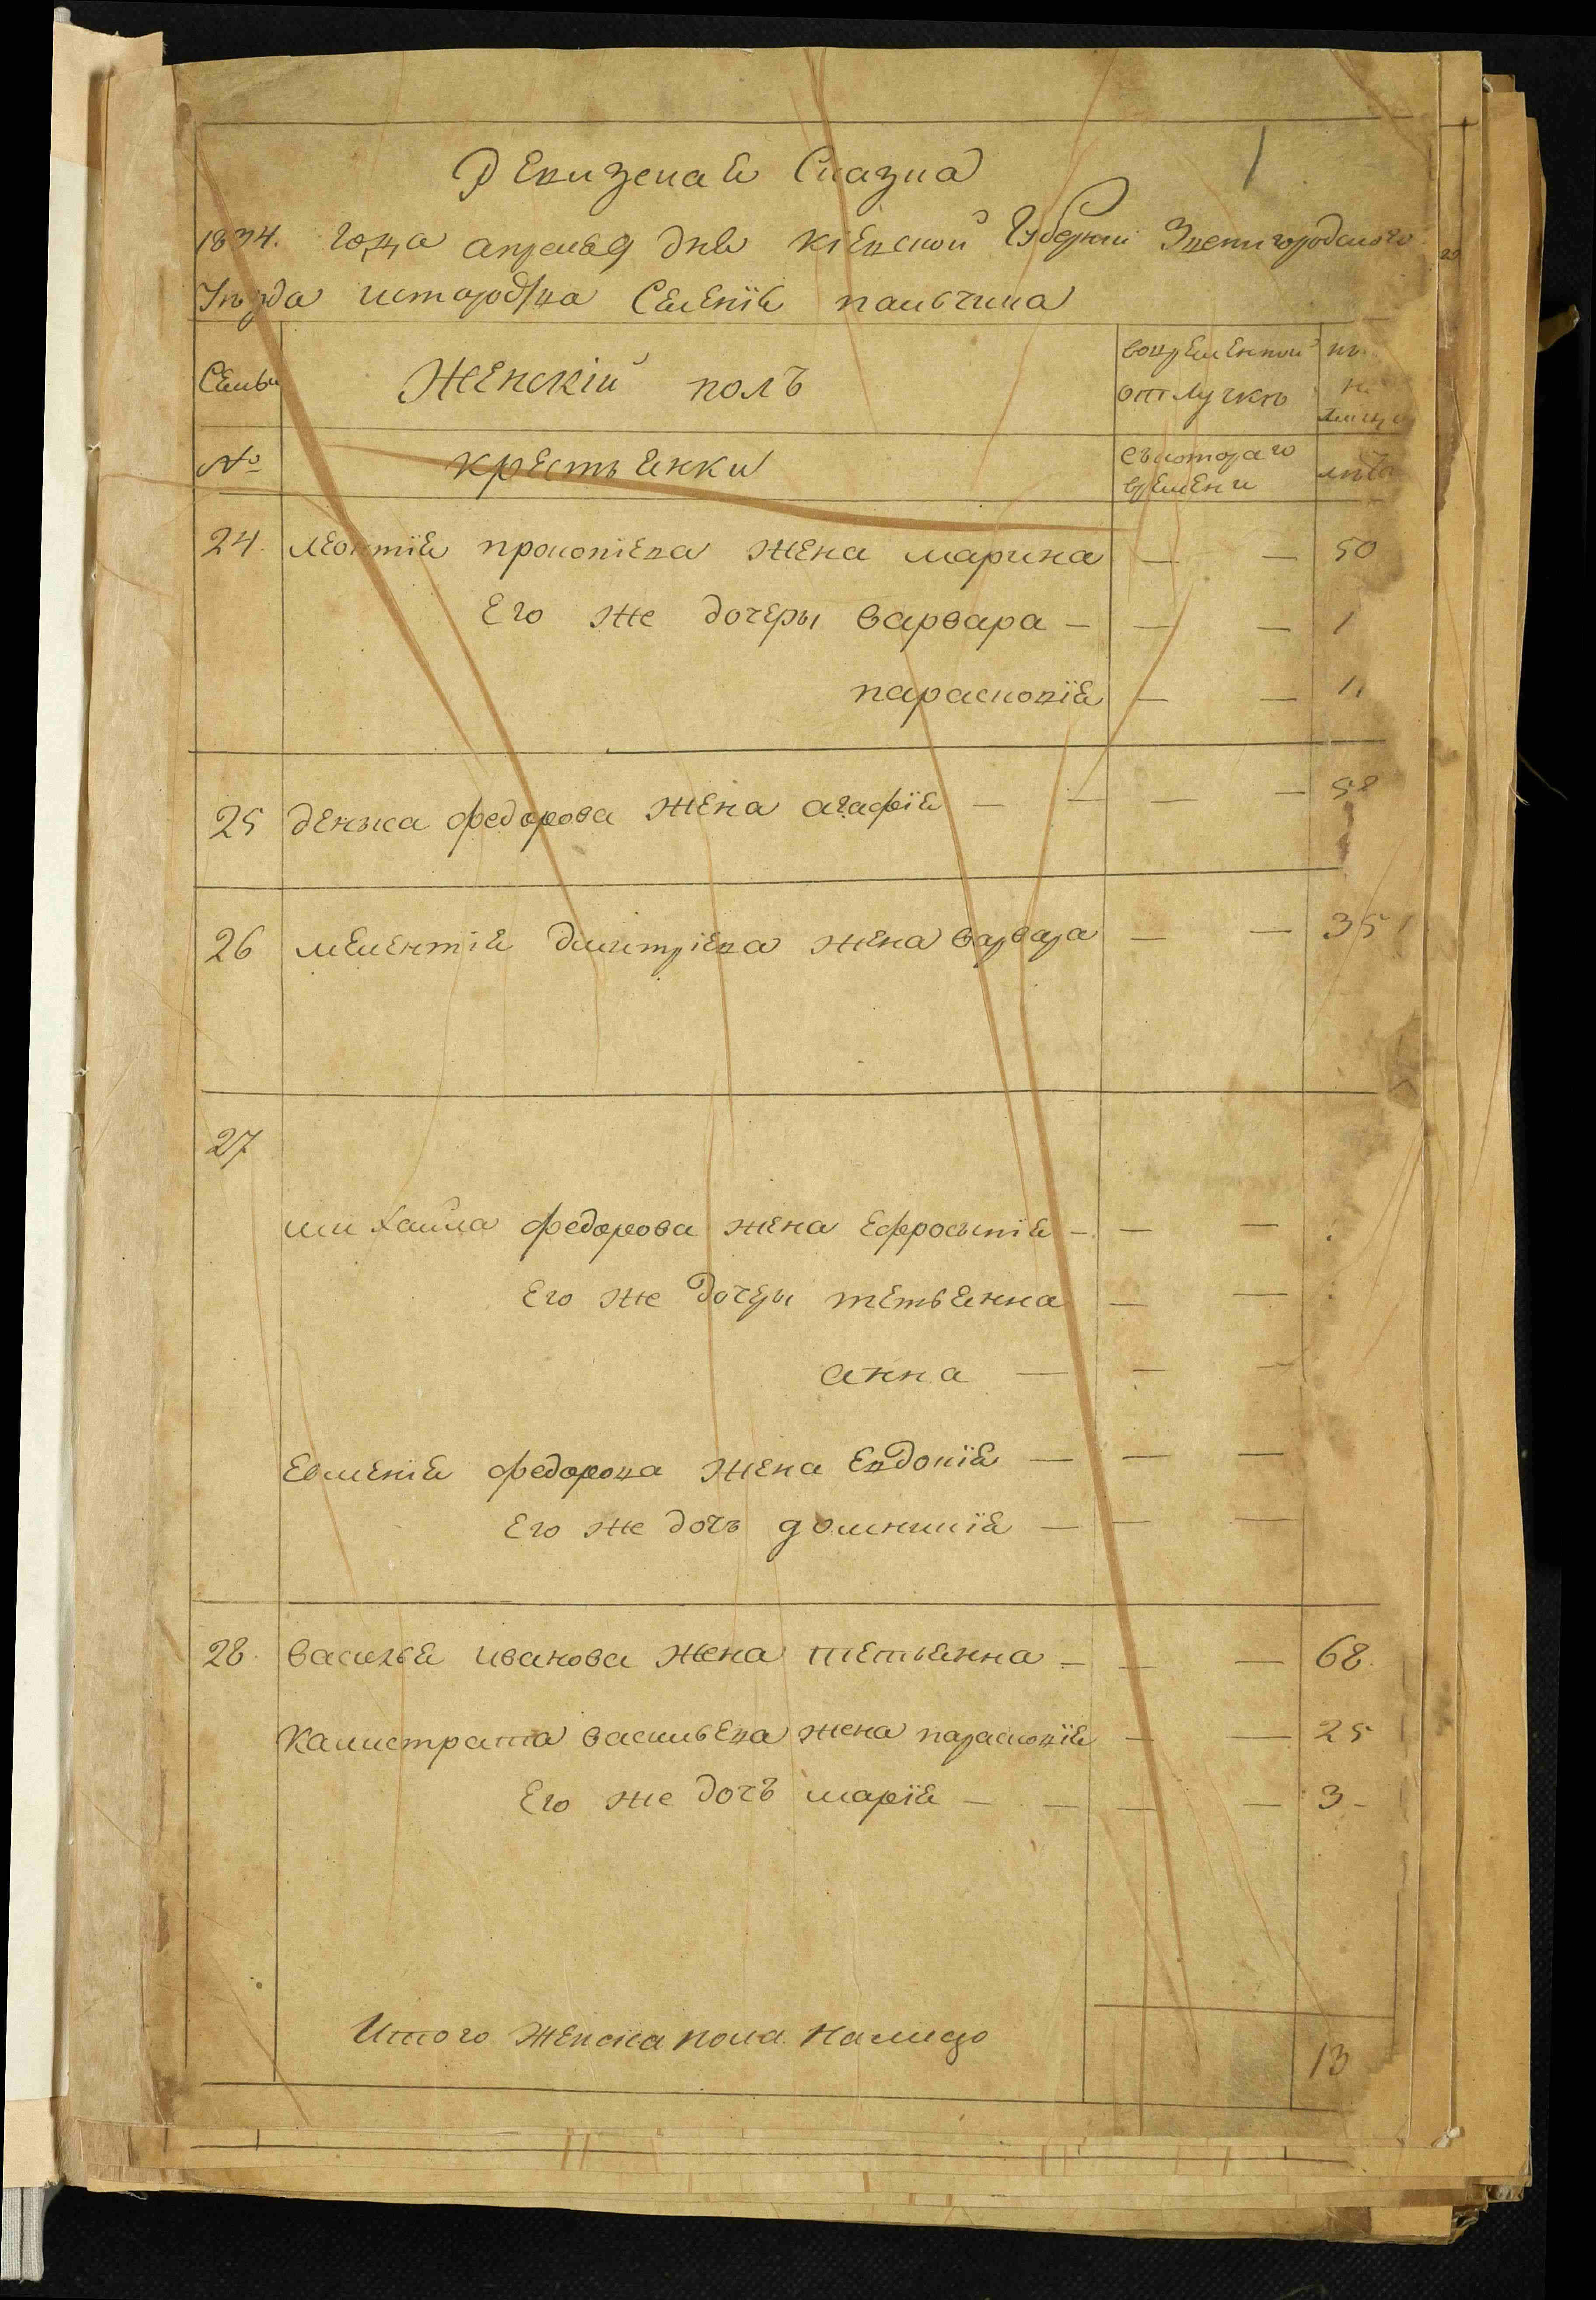 Ревизеная Сказка
1834. года апреля 9 дня киевской Губернии Звенигородского
Уезда Селения пальчика
Семьи
Женскій полъ
вовременной
отлучке
№
крестьянки
съкотораго
времени
лета
24. леонтия прокопіева жена марина — — 50
Его же дочеры варвара — — — 1
парасковїя — —
25 дениса федорова жена агафїя — — — —
26 мелентія дмитріева жена варвара — — 35
27
михайла федорова жена Ефросинія — — —
Его же дочеры тетьянна — —
анна — — —
Евменія федорова жена Евдокїя — — —
Его же дочъ домникїя — — —
28. василья иванова жена тетьянна — — — 68.
Калистрата васильева жена парасковїя — — 25
Его же дочъ марїя — — — — 3 -
Итого женска пола налицо 13